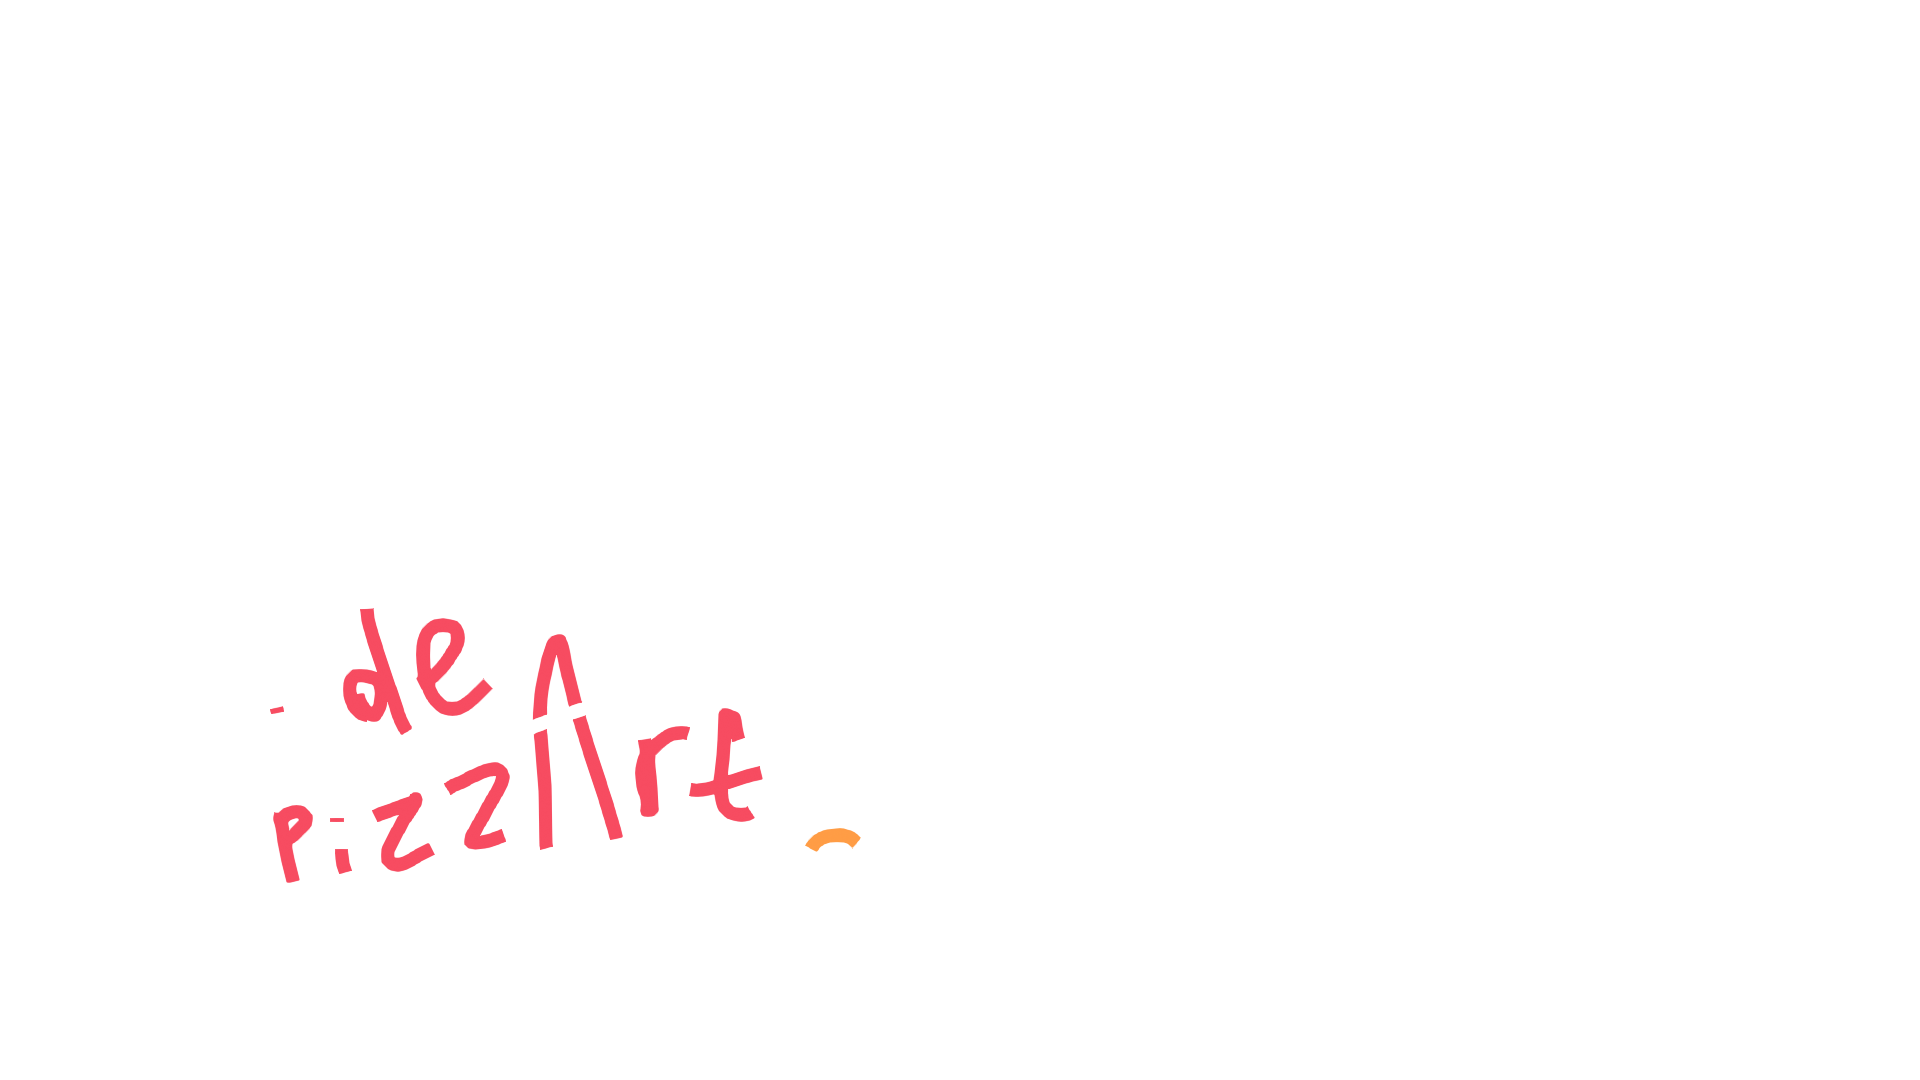 de
PizzArt